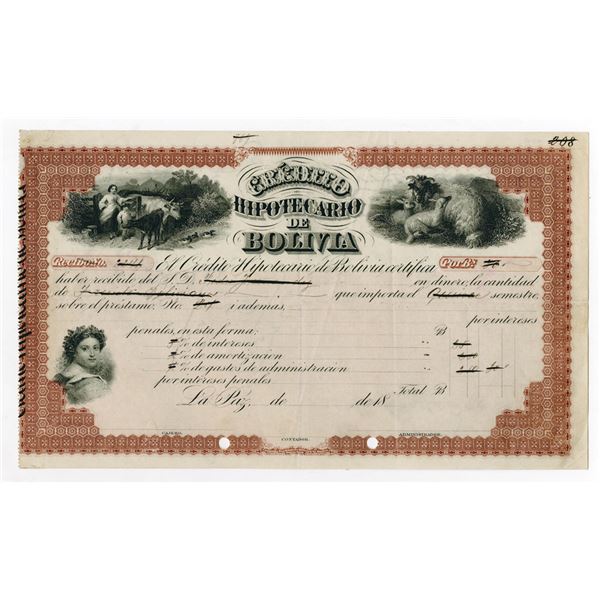 208
CRÉDITO
HIPOTECARIO
DE
BOLIVIA
Recibo No. Por Bs.
El Crédito Hipotecario de Bolivia certifica
haber recibido del S. D. en dinero, la cantidad
de que importa el semestre,
sobre el préstamo No. i además,
por intereses
penales, en esta forma: B
% de intereses
% de amortizacion
% de gastos de administración
por intereses penales
Total B
La Paz, de de 18
CAJERO. CONTADOR. ADMINISTRADOR.